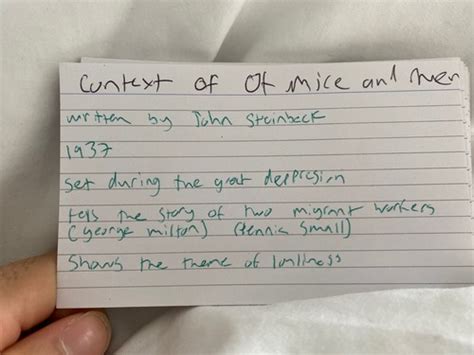 Context of Of mice and men
written by John Steinbeck
1937
set during the great deppresion
tells the story of two migrant workers
(george milton) (lennie small)
Shows the theme of lonliness